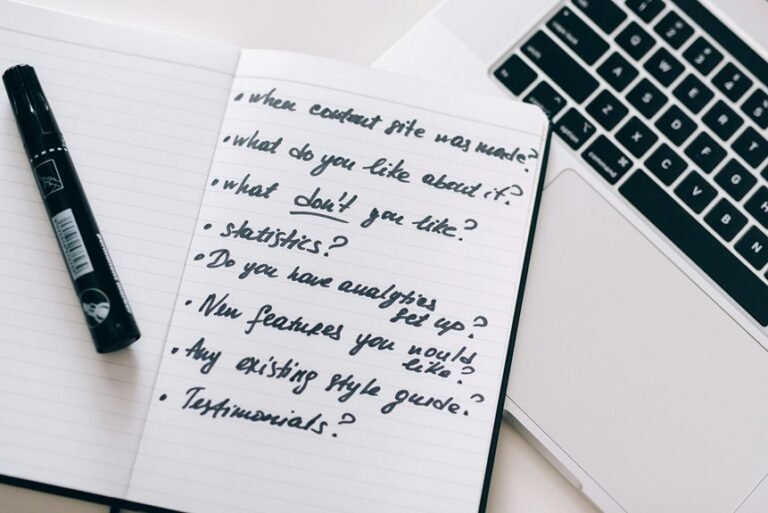 • when site was made?
• what do you like about it?
• what don't you like?
• statistics?
• Do you have analytics
set up?
• New features you would
like?
• Any existing style guide?
• Testimonials?
Q W E R T
A S D F G H
Z X C V B N
command